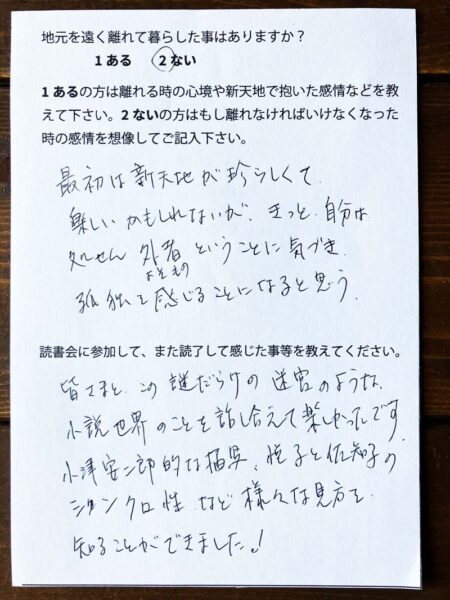 地元を遠く離れて暮らした事はありますか?
1 ある 2 ない
1 あるの方は離れる時の心境や新天地で抱いた感情などを教
えて下さい。2 ないの方はもし離れなければいけなくなった
時の感情を想像してご記入下さい。
最初は新天地が珍らしくて、
楽しいかもしれないが、きっと、自分は
処せん 外者 ということに気づき、
よそもの
孤独を感じることになると思う。
読書会に参加して、また読了して感じた事等を教えてください。
皆さまと、この謎だらけの迷宮のような、
小説世界のことを話し合えて楽しかったです。
小津安二郎的な描写、悦子と佐知子の
シンクロ性など様々な見方を
知ることができました!